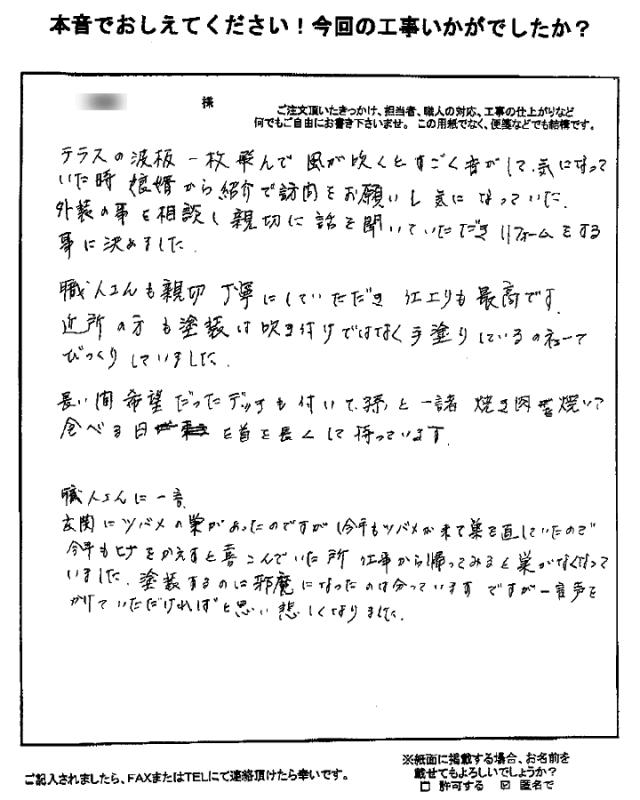 本音でおしえてください！今回の工事いかがでしたか？
様
ご注文頂いたきっかけ、担当者、職人の対応、工事の仕上がりなど
何でもご自由にお書き下さいませ。この用紙でなく、便箋などでも結構です。
テラスの波板一枚飛んで風が吹くとすごく音がして、気になって
いた時 娘婿から紹介で訪問をお願いし気になっていた
外装の事を相談し親切に話を聞いていただきリフォームをする
事に決めました.
職人さんも親切 丁寧にしていただき 仕上りも最高です
近所の方も塗装は吹き付けではなく手塗りしているの
びっくりしていました.
長い間希望だったデッキも付いて、孫と一諸 焼き肉 焼いて
食べる日 を首を長くして待っています.
職人さんに一言
玄関にツバメの巣があったのですが(今年もツバメが来て巣を直していたので
今年もヒナをかえすと喜こんでいた所 仕事から帰ってみると巣がなくなって
いました. 塗装するのに邪魔になったのは分っています ですが一言声を
かけていただければと思い悲しくなりました.
ご記入されましたら、FAXまたはTELにて連絡頂けたら幸いです。
※紙面に掲載する場合、お名前を
載せてもよろしいでしょうか？
□ 許可する ☑ 匿名で